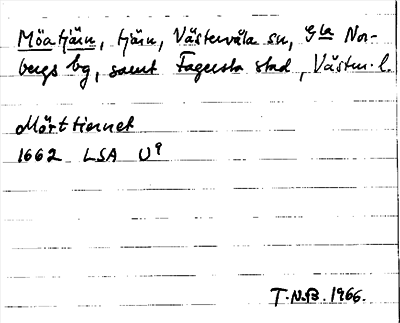 Möatjärn, tjärn, Västervåla sn, Gla Nor-
bergs bg, samt Fagersta stad, Västm. l.
Mörttiernet
1662 LSA U9
T.N.B. 1966.